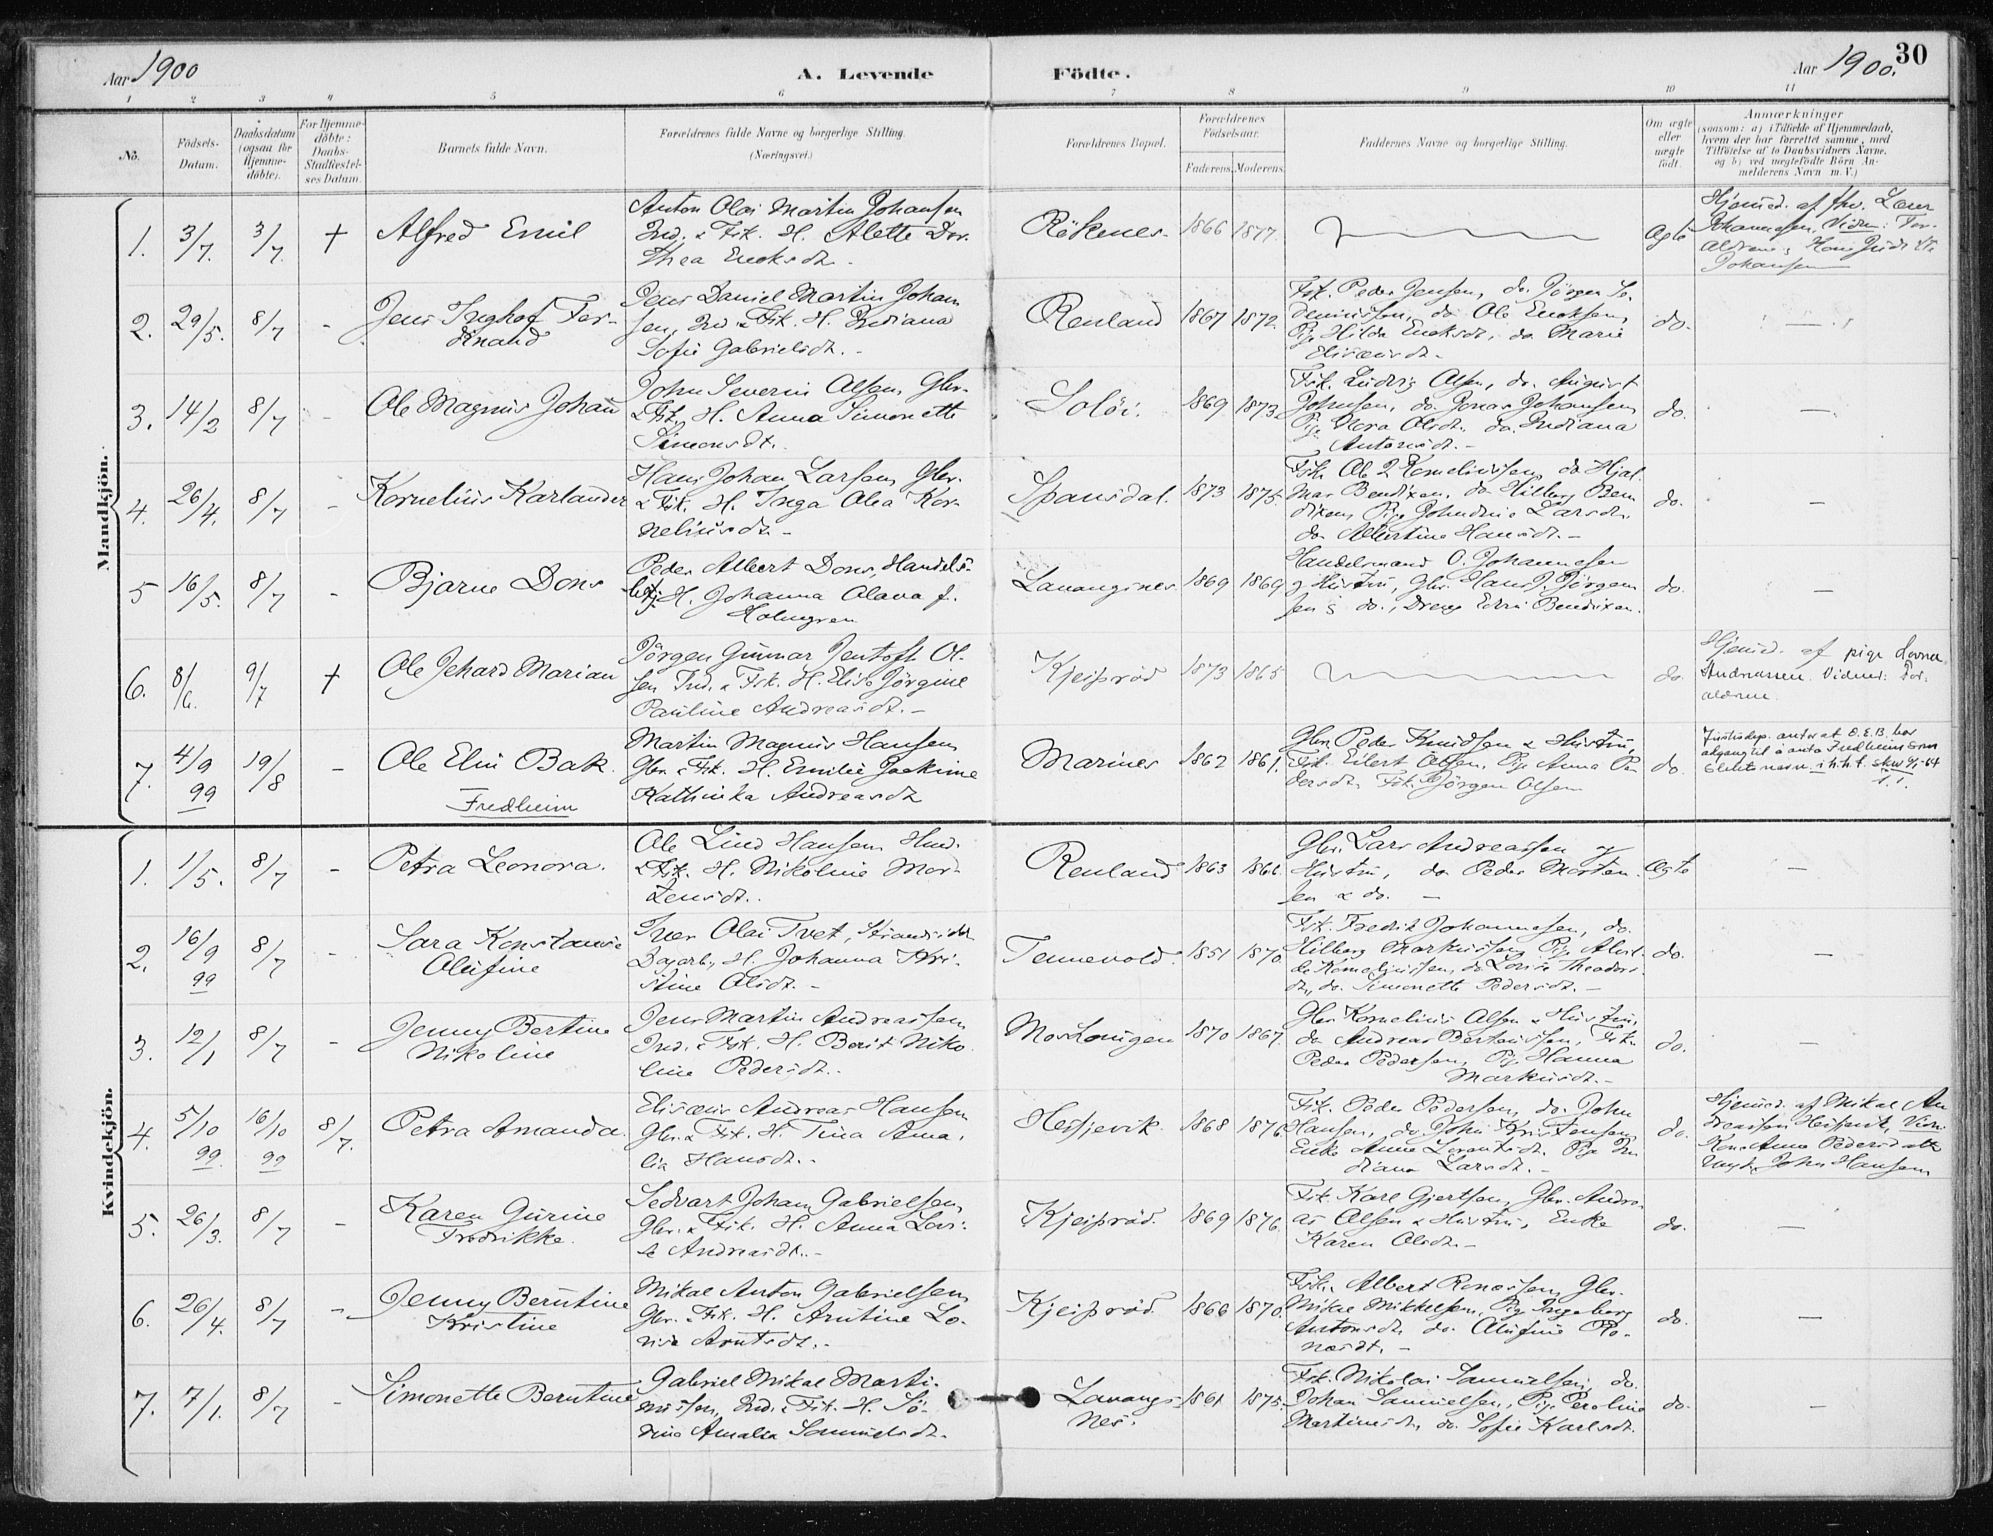 Aar 1900
A. Levende
Födte.
Aar 1900.
30
1 2 3 4 5 6 7 8 9 10 11
No.
Födsels-
Datum.
Daabsdatum
(ogsaa for
Hjemme-
döbte).
For Hjemme-
döbte:
Daabs-
Stadfæstel-
ses Datum.
Barnets fulde Navn.
Forældrenes fulde Navne og borgerlige Stilling.
(Næringsvei.)
Forældrenes Bopæl.
Forældrenes
Födselsaar.
Faderens. Moderens.
Faddernes Navne og borgerlige Stilling.
Om ægte
eller
uægte
födt.
Anmærkninger
(saasom: a) i Tilfælde af Hjemmedaab,
hvem der har forrettet samme, med
Tilföielse af to Daabsvidners Navne.
og b) ved uægtefödte Börn An-
melderens Navn m. V.)
Mandkjön.
1. 3/7. 3/7. +
Alfred Emil
Anton Olai Martin Johansen
Ind. & Fisk. H. Alette Dor-
thea Enoksdt.
Rökenes. 1866 1877.
Ægte
Hjemmed. af
Johannesen, Vidn: For-
ældrene,
Johansen
2. 29/5. 8/7 -
Jens Inghof Fer-
dinand
Jens Daniel Martin Johan
sen, Ind & Fisk. H. Indiana
Sofie Gabrielsdt. -
Renland 1867 1872.
Fisk. Peder Jensen, do. Jörgen
do Ole Enoksen,
Pige Hilda Enoksdt, do Marie
Elisæusdt -
do. -
3. 14/2 8/7 -
Ole Magnus Johan
John Severin Olsen, Gbr.
& Fisk, H. Anna Simonette
Simonsdt.
Solöi. 1869 1873.
Fisk. Ludvig Olsen, do. August
Johnsen, do Jonas Johansen
Pige Olsdt. do. Indiana
Antonsdt. -
do. -
4. 26/4. 8/7 -
Kornelius Karlander
Hans Johan Larsen, Gbr.
& Fisk. H. Inga Olea Kor-
neliusdt. -
Spansdal. 1873 1875.
Fisk. Ole Z Korneliussen, do Hjal-
mar Bendixen, do Hilberg Ben
dixen, Pige Larsdt.
do Albertine Hansdt. -
do. -
5 16/5. 8/7 -
Bjarne Dons
Peder Albert Dons, Handels-
betj. H. Johanna Olava f.
Holmgren
Lavangsnes. 1869 1869.
Handelsmand O. Johannesen
& Hustru, Gbr. Hans J. Jörgen
sen & do., Dreng Bendixen.
do. -
6. 8/6. 9/7 +
Ole Jehard Marian
Jörgen Gunnar Jentoft Ol-
sen Ind. & Fisk. H. Elise Jörgine
Pauline Andreasdt. -
Kjeipröd 1873 1865
do.
Hjemmed. af pige
Andreassen. Vidner: For-
ældrene.
7. 4/9 99 19/8 -
Ole Elin Bak
Fredheim
Martin Magnus Hansen
Gbr. & Fisk. H. Emilie Joakime
Kathinka Andreasdt
Marines 1862 1861.
Gbr. Peder Knudsen & Hustru,
Fisk. Eilert Olsen, Pige Anna Pe
dersdt, Fisk. Jörgen Olsen
do.
Justisdep. antar at O.E.B. har
adgang til å anta Fredheim som
slektsnavn
Kvindekjön.
1. 1/5. 8/7 -
Petra Leonora.
Ole Lind Hansen
& Fisk. H. Nikoline Mor-
tensdt..
Renland 1863 1866.
Gbr. Lars Andreassen og
Hustru, do Peder Morten-
sen & do. -
Ægte -
2. 16/9 99 8/7 -
Sara Konstanse
Olufine
Iver Olai Tvet, Strandsidd.
Dagarb., H. Johanna Kri-
stine Olsdt. -
Tennevold. 1851 1870.
Fisk. Fredrik Johannesen, do.
Hilberg Markussen, Pige
Korneliussen, do Louise Theodor
dt., do. Simonette Pedersdt. -
do. -
3. 12/1 8/7 -
Jenny Bertine
Nikoline
Jens Martin Andreassen,
Ind. & Fisk. H. Berit Niko
line Pedersdt. -
1870 1867.
Gbr. Kornelius Olsen & Hustru,
do Andreas Berteussen, Fisk.
Peder Pedersen, Pige Hanna
Markusdt. -
do. -
4. 5/10 99. 16/10 99 8/7.
Petra Amanda.
Elisæus Andreas Hansen
Gbr. & Fisk. H. Tina Ama-
lia Hansdt. -
Hesjevik. 1868 1876.
Fisk. Peder Pedersen, do. John
Hansen, do. John Kristensen,
Enke Anne Lorentsdt. Pige In
diana Larsdt. -
do.
Hjemmed. af Mikal An
dreassen
Kone Anna Pedersdt
John Hansen
5. 26/3. 8/7 -
Karen Gurine
Fredrikke.
Sedvart Johan Gabrielsen,
Gbr. & Fisk. H. Anna Lovi-
se Andreasdt. -
Kjeipröd. 1869 1876.
Fisk. Karl Gjertsen, Gbr. Andre-
as Olsen & Hustru, Enke
Karen Olsdt. -
do. -
6. 26/4. 8/7 -
Jenny Berntine
Kristine
Mikal Anton Gabrielsen,
Gbr. & Fisk. H. Arntine Lo-
vise Arntsdt. -
Kjeipröd. 1866 1870.
Fisk. Albert Gbr.
Mikal Mikkelsen, Pige Ingeborg
Antonsdt, do. Olufine
dt. -
do. -
7. 7/1. 8/7 -
Simonette Berntine
Gabriel Mikal Marti-
nussen, Ind. & Fisk. H. Se-
rine Amalia Samuelsdt.
Lavangs-
nes. 1861 1875.
Fisk. Nikolai Samuelsen, do.
Johan Samuelsen, Pige Peroline
Martinusdt, do. Sofie Karlsdt.
do. -